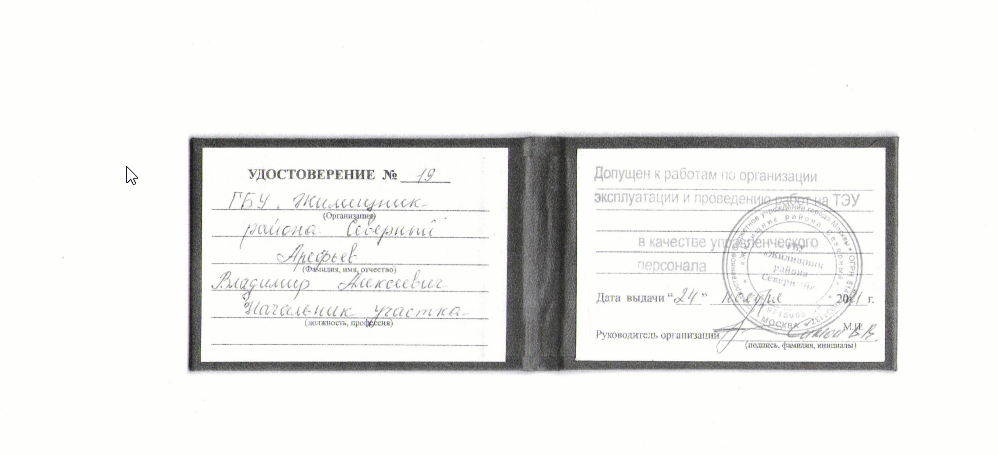 УДОСТОВЕРЕНИЕ № 19
ГБУ "Жилищник
(Организация)
района Северный"
Арефьев
(Фамилия, имя, отчество)
Владимир Алексеевич
Начальник участка
(должность, профессия)
Допущен к работам по организации
эксплуатации и проведению работ на ТЭУ
в качестве управленческого
персонала
Дата выдачи "24" ноября 2021 г.
М.П.
Руководитель организации
(подпись, фамилия, инициалы)
ГБУ
«Жилищник
района
Северный»
МОСКВА